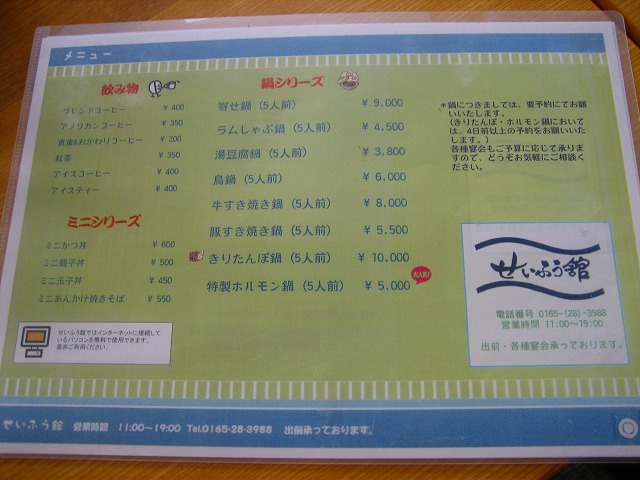 メニュー
飲み物
ブレンドコーヒー ¥ 400
アメリカンコーヒー ¥ 350
食後&おかわりコーヒー ¥ 200
紅茶 ¥ 350
アイスコーヒー ¥ 400
アイスティー ¥ 400
ミニシリーズ
ミニかつ丼 ¥ 600
ミニ親子丼 ¥ 500
ミニ玉子丼 ¥ 450
ミニあんかけ焼きそば ¥ 550
せいふう館ではインターネットに接続して
いるパソコンを無料で使用できます。
是非ご利用ください。
鍋シリーズ
寄せ鍋(5人前) ¥ 9.000
ラムしゃぶ鍋(5人前) ¥ 4.500
湯豆腐鍋(5人前) ¥ 3,800
鳥鍋(5人前) ¥ 6.000
牛すき焼き鍋(5人前) ¥ 8,000
豚すき焼き鍋(5人前) ¥ 5.500
きりたんぽ鍋(5人前) ¥ 10.000
特製ホルモン鍋(5人前) ¥ 5.000
大人気!
*鍋につきましては、要予約にてお願
いいたします。
(きりたんぽ・ホルモン鍋において
は、4日前以上の予約をお願いいた
します。)
各種宴会もご予算に応じて承りま
すので、どうぞお気軽にご相談く
ださい。
せいふう館
電話番号 0165-(28)-3988
営業時間 11:00~19:00
出前・各種宴会承っております。
せいふう館 営業時間 11:00~19:00 Tel.0165-28-3988 出前承っております。